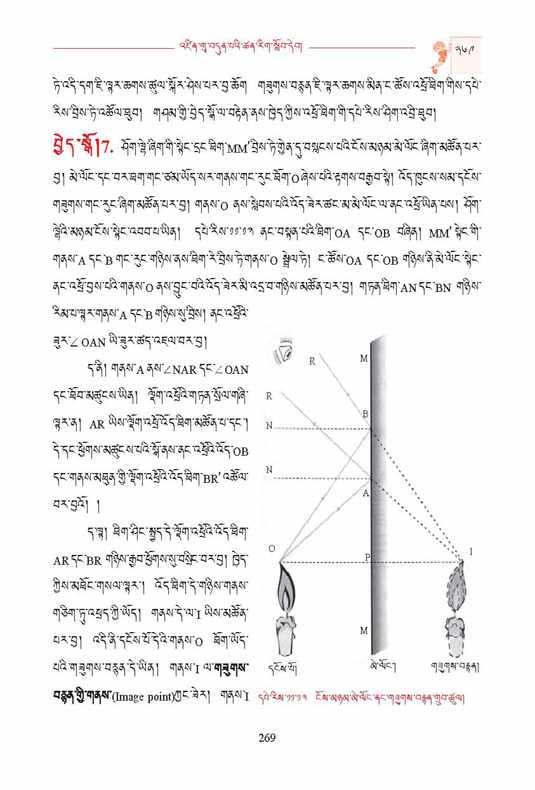 འཛིན་གྲྭ་བདུན་པའི་ཚན་རིག་སློབ་དེབ།
༢༦༩
ཏེ་འདི་དག་ཇི་ལྟར་ཆགས་ཚུལ་སྐོར་ཤེས་པར་བྱ་ཆོག གཟུགས་བརྙན་ཇི་ལྟར་ཆགས་མིན་ང་ཚོས་འཕྲོ་ཐིག་གིས་དཔེ་
རིས་བྲིས་ཏེ་འཚོལ་ཐུབ། གཤམ་གྱི་བྱེད་སྒོ་ལ་བརྟེན་ནས་ཁྱེད་ཀྱིས་འཕྲོ་ཐིག་གི་དཔེ་རིས་ཤིག་འབྲི་ཐུབ།
བྱེད་སྒོ།7. ཤོག་ལྷེ་ཞིག་གི་སྟེང་དྲང་ཐིག་MM'བྲིས་ཏེ་གྱེན་དུ་བསླངས་པའི་ངོས་མཉམ་མེ་ལོང་ཞིག་མཚོན་པར་
བྱ། མེ་ལོང་དང་བར་ཐག་གང་ཙམ་ཡོད་སར་གནས་གང་རུང་ཐོག་O་ཞེས་པའི་རྟགས་བརྒྱབ་སྟེ། འོད་ཁུངས་སམ་དངོས་
གཟུགས་གང་རུང་ཞིག་མཚོན་པར་བྱ། གནས་O་ནས་སླེབས་པའི་འོད་ཟེར་ཚང་མ་མེ་ལོང་ལ་ནང་འཕྲོ་ཡིན་པས། ཤོག་
ལྷེའི་མཉམ་ངོས་སྟེང་འབབ་པ་ཡིན། དཔེ་རིས་༡༡་༡༡ ནང་བསྟན་པའི་ཐིག་OA དང་OB བཞིན། MM' སྟེང་གི་
གནས་A དང་B གང་རུང་གཉིས་ནས་ཐིག་རེ་བྲིས་ཏེ་གནས་O སྦྲེལ་ཏེ། ང་ཚོས་OA དང་OB གཉིས་ནི་མེ་ལོང་སྟེང་
ནང་འཕྲོ་བྱས་པའི་གནས་O་ནས་བྱུང་བའི་འོད་ཟེར་མི་འདྲ་བ་གཉིས་མཚོན་པར་བྱ། གཏན་ཐིག་AN་དང་BN གཉིས་
རིམ་པ་ལྟར་གནས་A དང་B གཉིས་སུ་བྲིས། ནང་འཕྲོའི་
ཟུར་∠OAN ཡི་ཟུར་ཚད་འཇལ་བར་བྱ།
ད་ནི། གནས་A ནས་∠NAR དང་∠OAN
དང་ཐོབ་མཚུངས་ཡིན། ལྡོག་འཕྲོའི་གཏན་སྲོལ་གཞི་
ལྟར་ན། AR ཡིས་ལྡོག་འཕྲོའི་འོད་ཐིག་མཚོན་པ་དང་།
དེ་དང་ཕྱོགས་མཚུངས་པའི་སྒོ་ནས་ནང་འཕྲོའི་འོད་OB
དང་གནས་མཐུན་གྱི་ལྡོག་འཕྲོའི་འོད་ཐིག་BR' འཚོལ་
བར་བྱའོ། །
ད་ལྟ། ཐིག་ཤིང་སྤྱད་དེ་ལྡོག་འཕྲོའི་འོད་ཐིག་
AR དང་BR གཉིས་རྒྱབ་ཕྱོགས་སུ་བསྲིང་བར་བྱ། ཁྱེད་
ཀྱིས་མཐོང་གསལ་ལྟར། འོད་ཐིག་དེ་གཉིས་གནས་
གཅིག་ཏུ་འཕྲད་ཀྱི་ཡོད། གནས་དེ་ལ་I ཡིས་མཚོན་
པར་བྱ། འདི་ནི་དངོས་པོ་དེའི་གནས་O ཐོག་ཡོད་
པའི་གཟུགས་བརྙན་དེ་ཡིན། གནས་I ལ་གཟུགས་
བརྙན་གྱི་གནས་(Image point)ཀྱང་ཟེར། གནས་I
R
M
R
B
N
N
A
O
P
I
M
དངོས་པོ།
མེ་ལོང་།
གཟུགས་བརྙན།
དཔེ་རིས་༡༡་༡༡ ངོས་མཉམ་མེ་ལོང་ནང་གཟུགས་བརྙན་གྲུབ་ཚུལ།
269